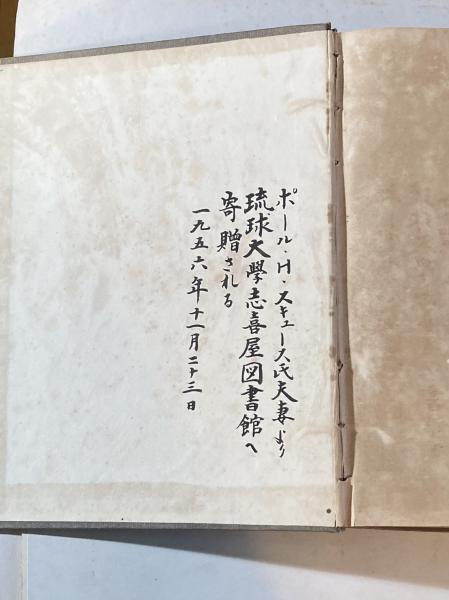 ポール・H・スキュース氏夫妻より
琉球大學志喜屋図書館へ
寄贈される
一九五六年十一月二十三日